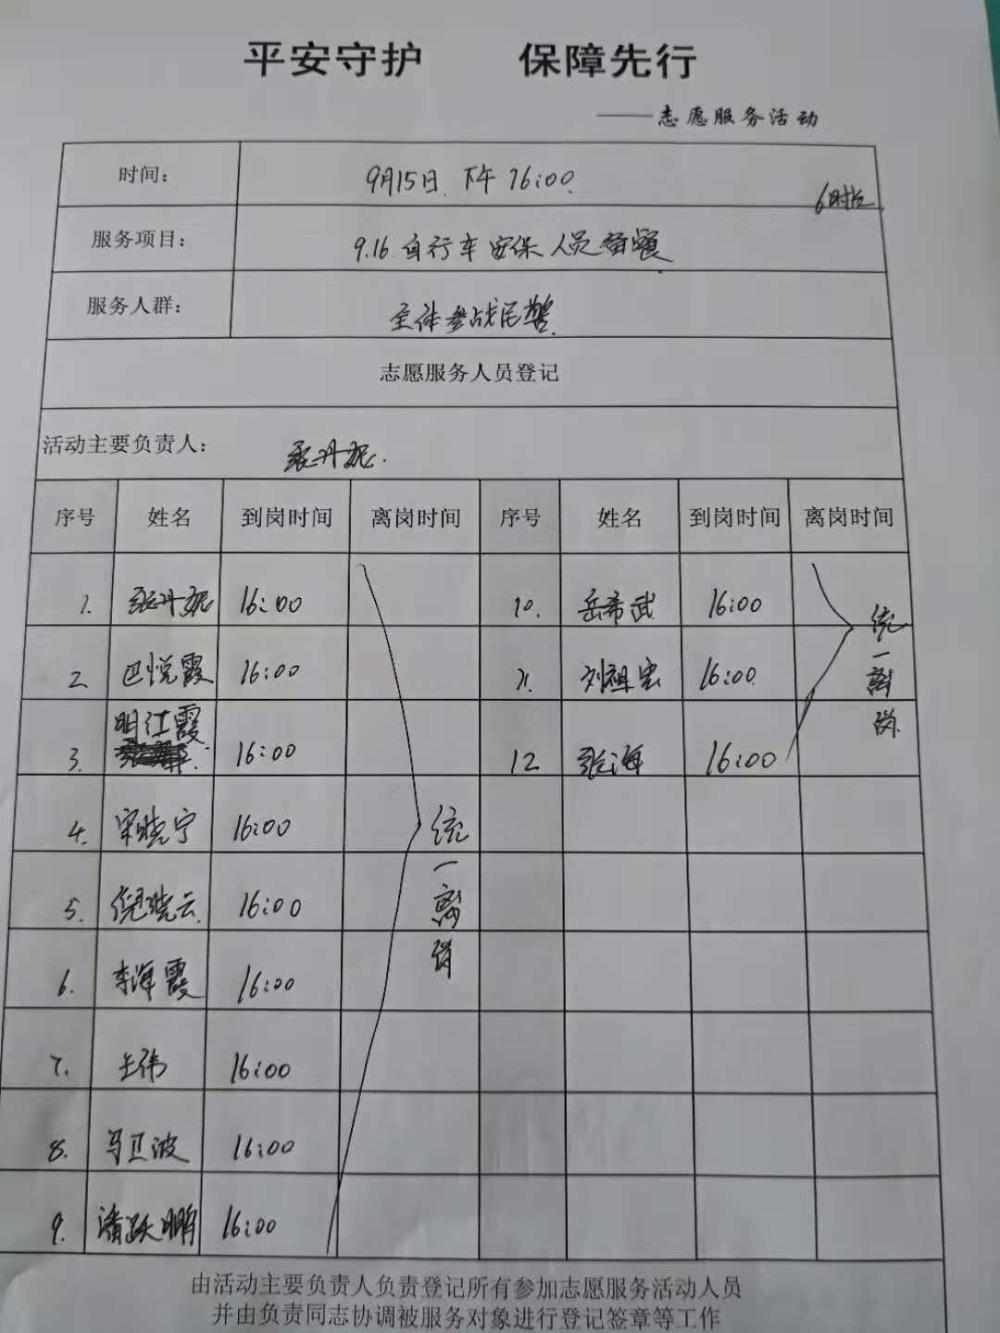 平安守护 保障先行
——志愿服务活动
时间： 9月15日 下午 16:00
服务项目： 9.16 自行车安保人员
服务人群： 全体参战民警
志愿服务人员登记
活动主要负责人： 张丹妮
序号 姓名 到岗时间 离岗时间 序号 姓名 到岗时间 离岗时间
1. 张丹妮 16:00 10. 岳希武 16:00 统一离岗
2 巴悦霞 16:00 11. 刘祖宏 16:00
3. 明江霞 16:00 12 张海 16:00
4. 宋晓宁 16:00 统一离岗
5. 倪晓云 16:00
6. 李海霞 16:00
7. 王伟 16:00
8. 马卫波 16:00
9. 潘跃鹏 16:00
由活动主要负责人负责登记所有参加志愿服务活动人员
并由负责同志协调被服务对象进行登记签章等工作